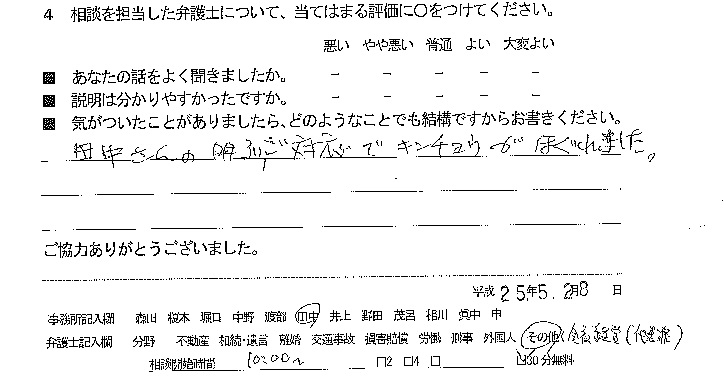 4 相談を担当した弁護士について、当てはまる評価に○をつけてください。
悪い やや悪い 普通 よい 大変よい
あなたの話をよく聞きましたか。 － － － － －
説明は分かりやすかったですか。 － － － － －
気がついたことがありましたら、どのようなことでも結構ですからお書きください。
田中さんの明るいご対応でキンチョウがほぐれました。
ご協力ありがとうございました。
平成 25年5.28 日
事務所記入欄 森田 榎本 堀口 中野 渡部 田中 井上 野田 茂呂 相川 眞中 申
弁護士記入欄 分野 不動産 相続・遺言 離婚 交通事故 損害賠償 労働 刑事 外国人 その他(会社経営(代表
相談開始時間 10:00~ □2 □4 □ 30分無料